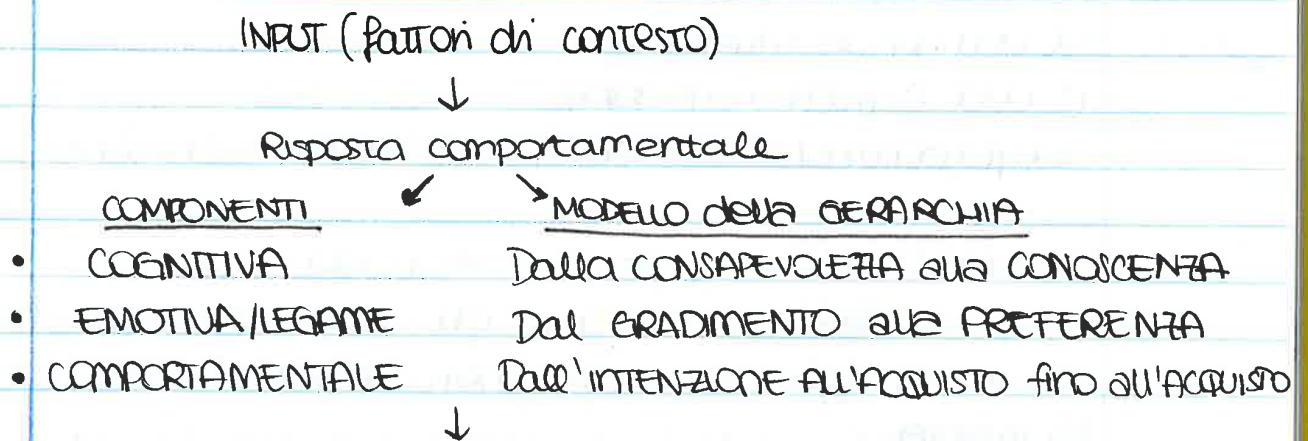 INPUT (fattori di contesto)
↓
Risposta comportamentale
↙ ↘
COMPONENTI MODELLO della GERARCHIA
• COGNITIVA Dalla CONSAPEVOLEZZA alla CONOSCENZA
• EMOTIVA/LEGAME Dal GRADIMENTO alla PREFERENZA
• COMPORTAMENTALE Dall'INTENZIONE ALL'ACQUISTO fino all'ACQUISTO
↓